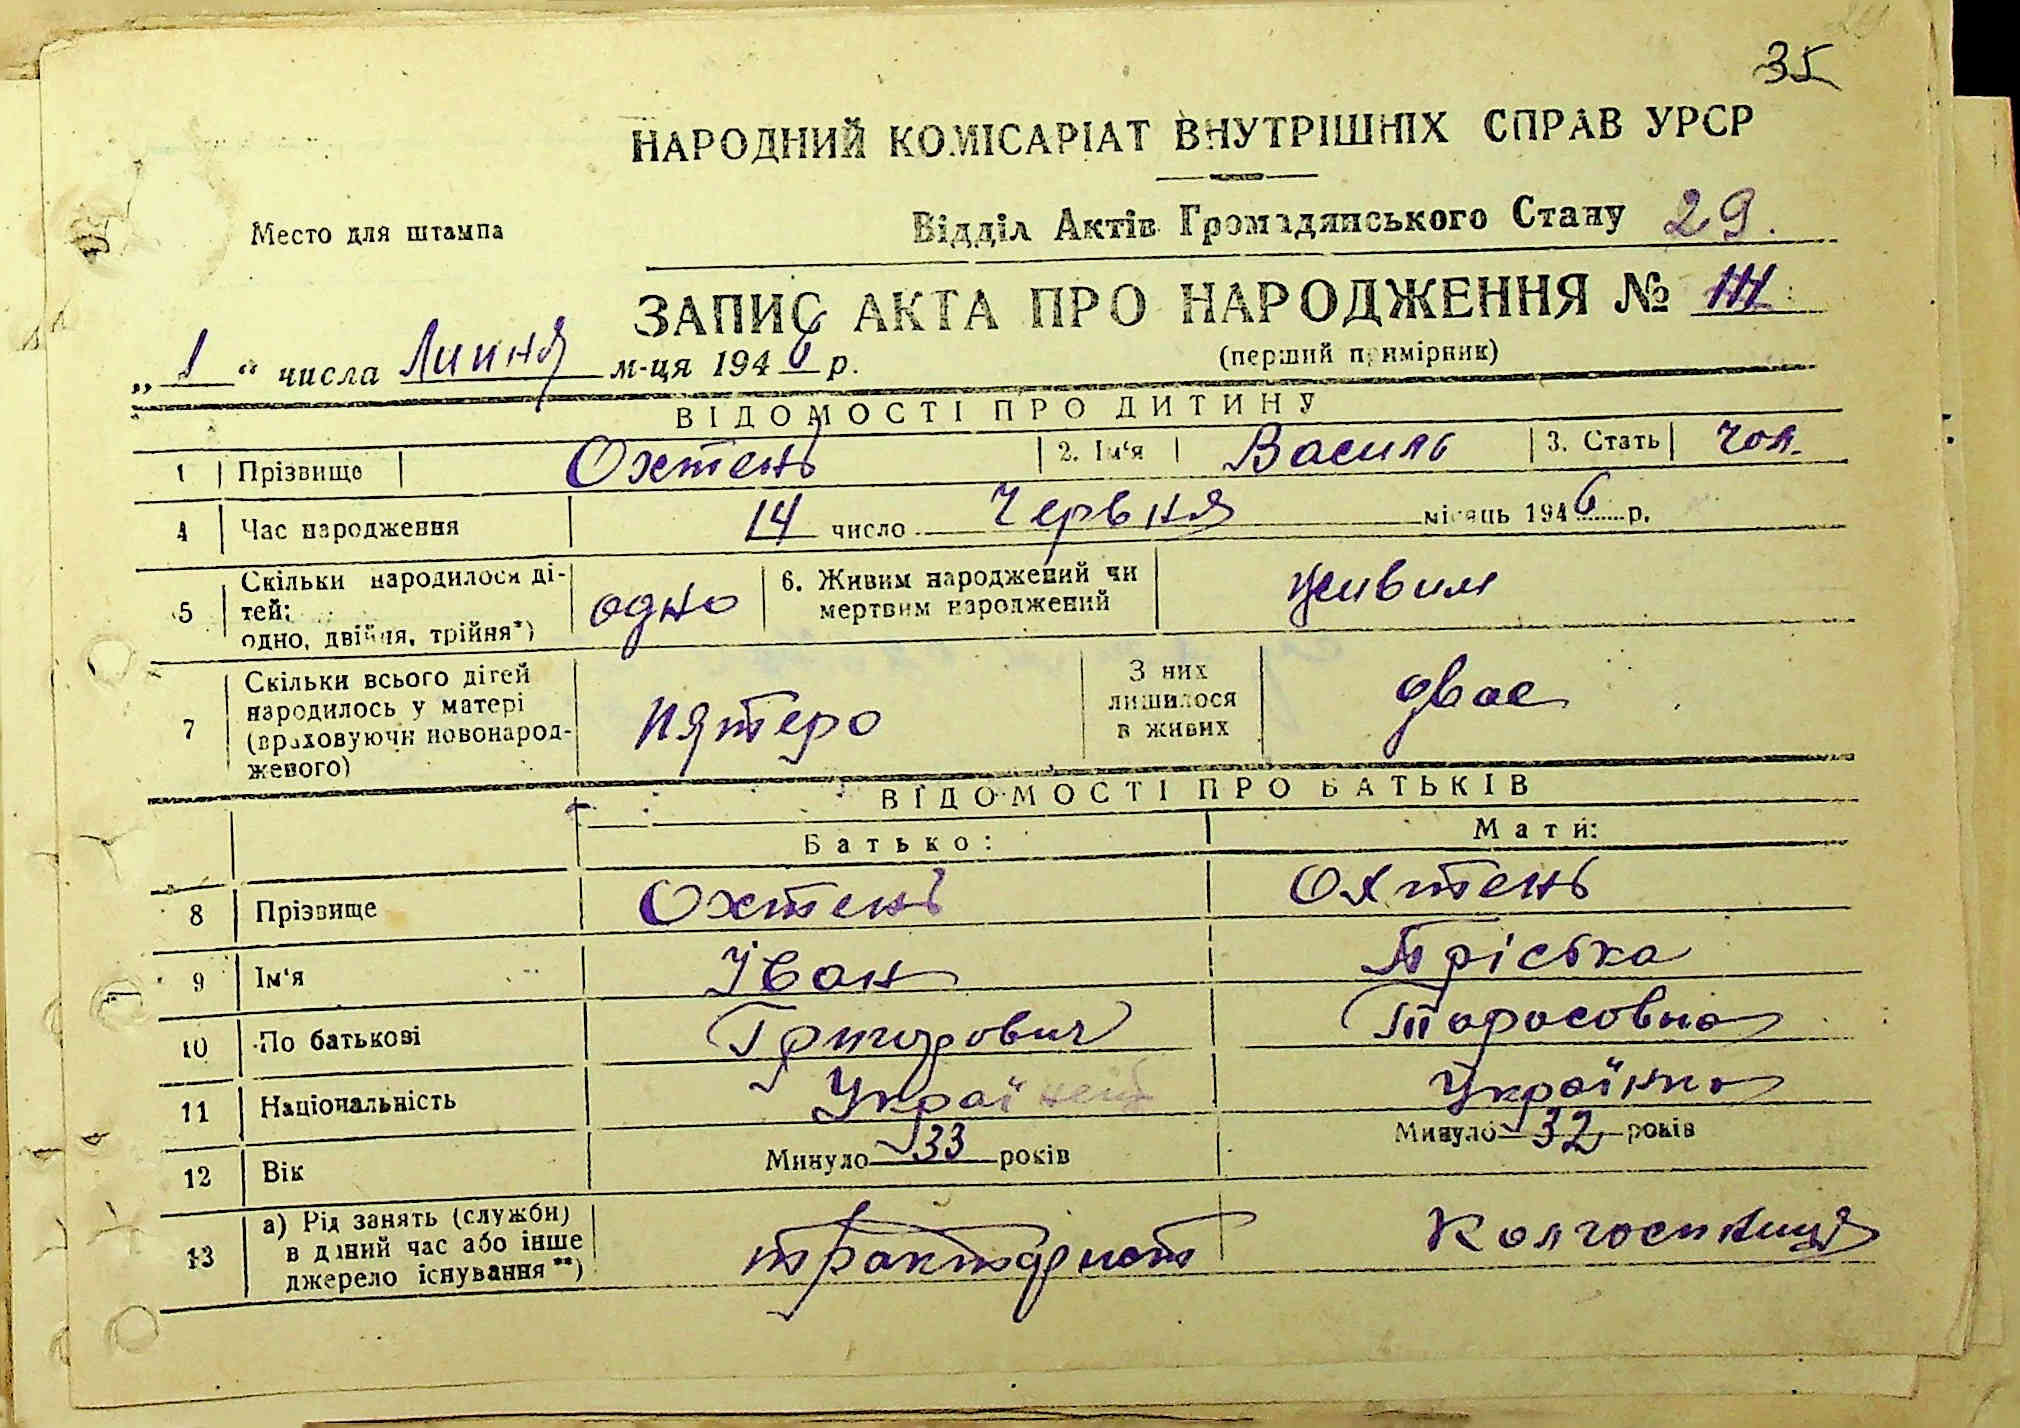 35
НАРОДНИЙ КОМІСАРІАТ ВНУТРІШНІХ СПРАВ УРСР
Место для штампа
Відділ Актів Громадянського Стану 29.
ЗАПИС АКТА ПРО НАРОДЖЕННЯ №
(перший примірник)
„ 1 “ числа Липня м-ця 1946 р.
ВІДОМОСТІ ПРО ДИТИНУ
1 Прізвище Охтень 2. Ім'я Василь 3. Стать чол.
4 Час народження 14 число Червня місяць 1946 р.
5 Скільки народилося ді-
тей:
одно, двійня, трійня*)
одно
6. Живим народжений чи
мертвим народжений
живим
7 Скільки всього дітей
народилось у матері
(враховуючи новонарод-
женого)
пятеро
З них
лишилося
в живих
двое
ВІДОМОСТІ ПРО БАТЬКІВ
Батько: Мати:
8 Прізвище Охтень Охтень
9 Ім'я Іван Пріська
10 По батькові Григорович Тарасовна
11 Національність Українец Українка
12 Вік Минуло 33 років Минуло 32 років
13 а) Рід занять (служби)
в даний час або інше
джерело існування**)
тракторист Колгоспниця